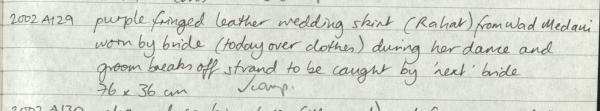 2002 A129 purple fringed leather wedding skirt (Rahat) from Wad Medani
worn by bride (today over clothes) during her dance and
groom breaks off strand to be caught by 'next' bride
76 x 36 cm ✓comp.
2002 A130